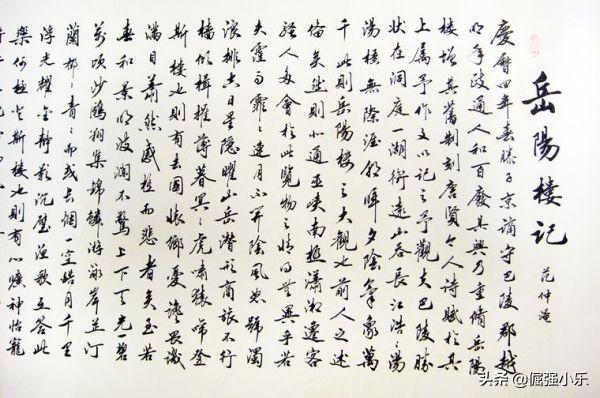 岳陽樓記
范仲淹
慶曆四年春滕子京謫守巴陵郡越
明年政通人和百廢具興乃重脩岳陽
樓增其舊制刻唐賢今人詩賦於其
上屬予作文以記之予觀夫巴陵勝
狀在洞庭一湖銜遠山吞長江浩〻湯
湯橫無際涯朝暉夕陰氣象萬
千此則岳陽樓之大觀也前人之述
備矣然則北通巫峽南極瀟湘遷客
騷人多會於此覽物之情得無異乎若
夫霪雨霏〻連月不開陰風怒號濁
浪排空日星隱曜山岳潛形商旅不行
檣傾楫摧薄暮冥〻虎嘯猿啼登
斯樓也則有去國懷鄉憂讒畏譏
滿目蕭然感極而悲者矣至若
春和景明波瀾不驚上下天光碧
萬頃沙鷗翔集錦鱗游泳岸芷汀
蘭郁〻青〻而或長煙一空皓月千里
浮光耀金靜影沉璧漁歌互答此
樂何極登斯樓也則有心曠神怡寵
头条 @倔强小乐